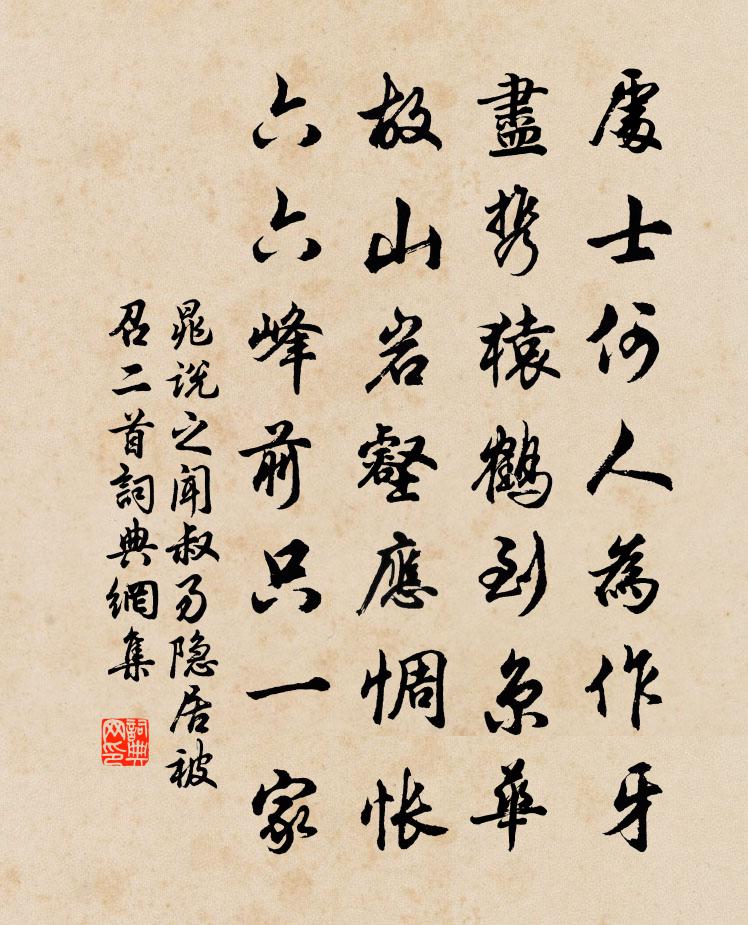 處士何人為作牙
盡携猿鶴到京華
故山岩壑應惆悵
六六峰前只一家
晁說之聞叔易隐居被
召二首詞典網集
詞典网印